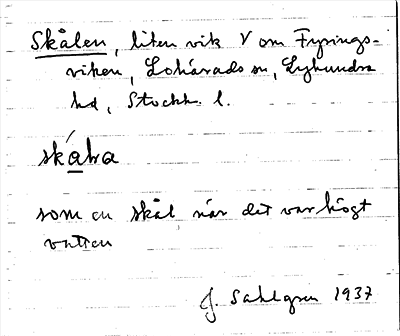 Skålen, liten vik V om Fyrings-
viken, Lohärads sn, Lyhundra
hd, Stockh. l.
ską́ƚa
som en skål när det var högt
vatten
J. Sahlgren 1937